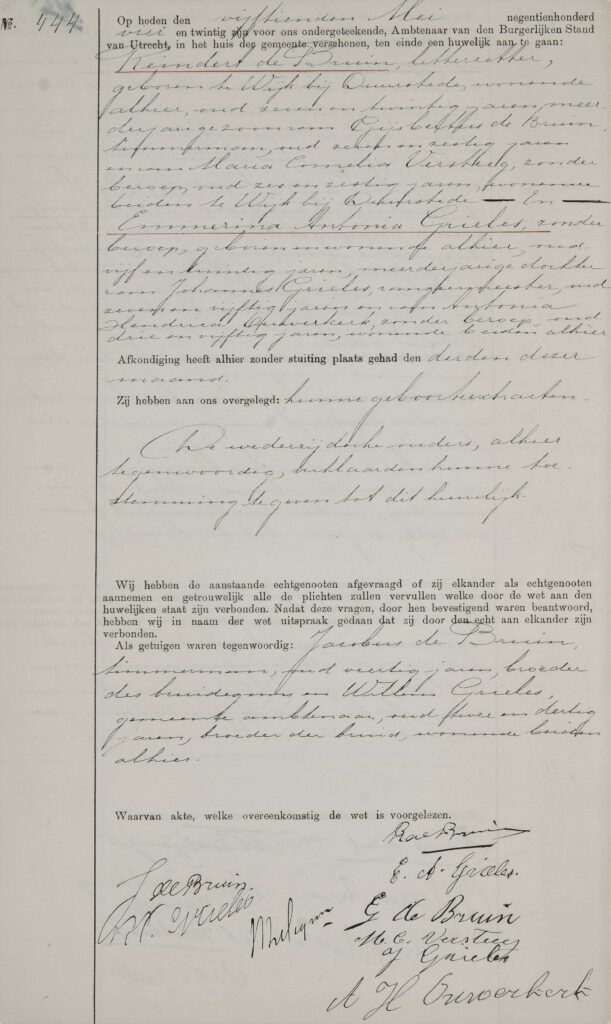 No. 444
Op heden den vijftienden Mei negentienhonderd
vier en twintig zijn voor ons ondergeteekende, Ambtenaar van den Burgerlijken Stand
van Utrecht, in het huis der gemeente verschenen, ten einde een huwelijk aan te gaan:
Reindert de Bruin, letterzetter,
geboren te Wijk bij Duurstede, wonende
alhier, oud zeven en twintig jaren, meer-
derjarige zoon van Gijsbertus de Bruin
timmerman, oud zeven en zestig jaren
en van Maria Cornelia Versteeg, zonder
beroep, oud zes en zestig jaren, wonende
beiden te Wijk bij Duurstede — En —
Emmerina Antonia Grieles, zonder
beroep, geboren en wonende alhier, oud
vijf en twintig jaren, meerderjarige dochter
van Johannes Grieles, oud
zeven en vijftig jaren en van Antonia
Hendrica Ouwerkerk, zonder beroep, oud
drie en vijftig jaren, wonende beiden alhier
Afkondiging heeft alhier zonder stuiting plaats gehad den derden dezer
maand.
Zij hebben aan ons overgelegd: hunne geboorteextracten.
De wederzijdsche ouders, alhier
tegenwoordig, verklaarden hunne toe-
stemming te geven tot dit huwelijk.
Wij hebben de aanstaande echtgenooten afgevraagd of zij elkander als echtgenooten
aannemen en getrouwelijk alle de plichten zullen vervullen welke door de wet aan den
huwelijken staat zijn verbonden. Nadat deze vragen, door hen bevestigend waren beantwoord,
hebben wij in naam der wet uitspraak gedaan dat zij door den echt aan elkander zijn
verbonden.
Als getuigen waren tegenwoordig: Jacobus de Bruin,
timmerman, oud veertig jaren, broeder
des bruidegoms en Willem Grieles,
gemeente ambtenaar, oud twee en dertig
jaren, broeder der bruid, wonende beiden
alhier.
Waarvan akte, welke overeenkomstig de wet is voorgelezen.
R de Bruin
E. A. Grieles.
J de Bruin.
W. Grieles
G de Bruin
M. C. Versteeg
J Grieles
A H Ouwerkerk